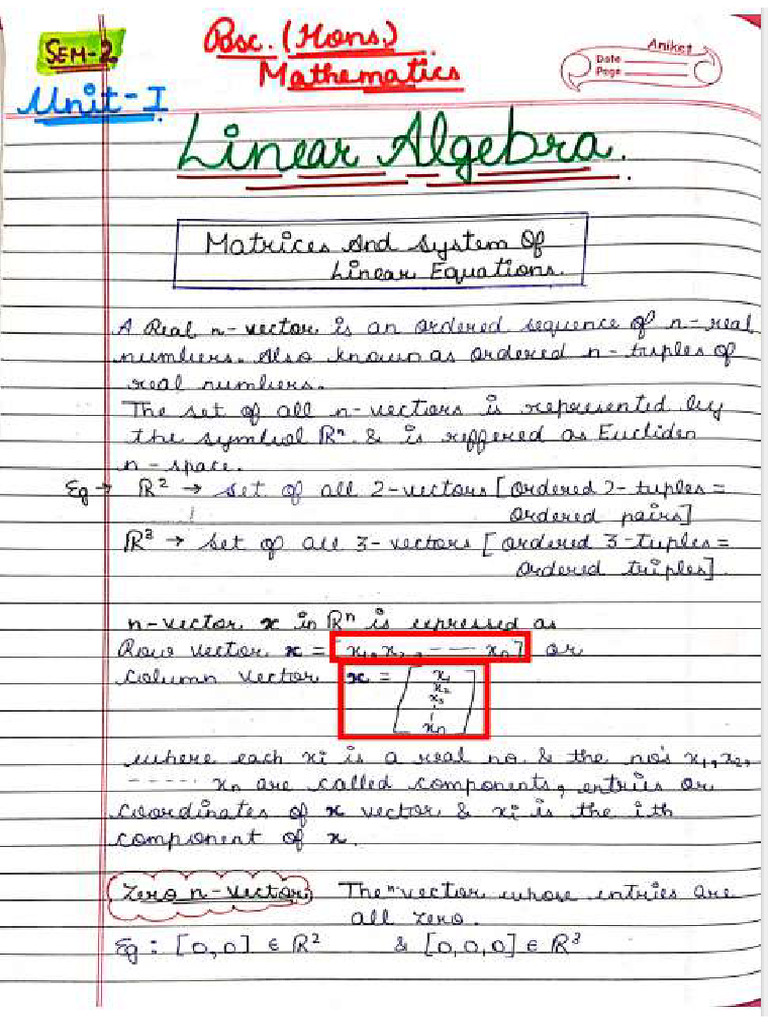 SEM-2
Bsc. (Hons.)
Mathematics
Aniket
Date
Page
Unit-I
Linear Algebra.
Matrices And System Of
Linear Equations.
A Real n-vector is an ordered sequence of n-real
numbers. Also known as ordered n-tuples of
real numbers.
The set of all n-vectors is represented by
the symbol ℝⁿ. & is reffered as Eucliden
n-space.
Eg → ℝ² → set of all 2-vectors [ordered 2-tuples =
ordered pairs]
ℝ³ → set of all 3-vectors [ordered 3-tuples =
ordered triples].
n-vector x in ℝⁿ is expressed as
Row vector x = [x₁, x₂, ---- xn] or
column vector x = [x₁
x₂
x₃
⋮
xn]
where each xi is a real no. & the no's x₁, x₂,
----- xn are called components, entries or
coordinates of x vector & xi is the ith
component of x.
Zero n-vector The n-vector whose entries are
all zero.
Eg : [0,0] ∈ ℝ² & [0,0,0] ∈ ℝ³